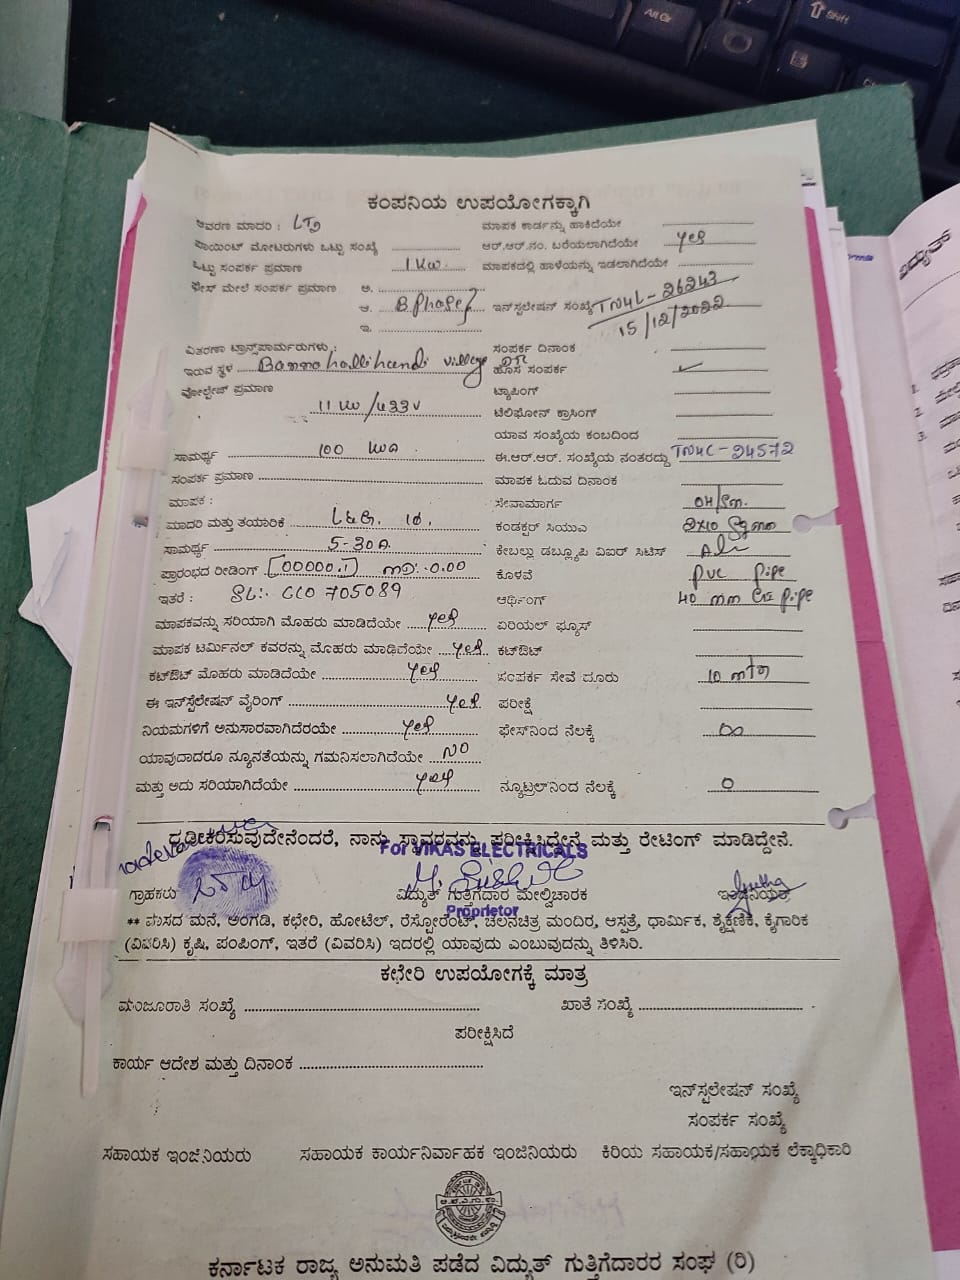 ಕಂಪನಿಯ ಉಪಯೋಗಕ್ಕಾಗಿ
ಆವರಣ ಮಾದರಿ : LT2 ಮಾಪಕ ಕಾರ್ಡನ್ನು ಹಾಕಿದೆಯೇ
ಪಾಯಿಂಟ್ ಮೋಟರುಗಳು ಒಟ್ಟು ಸಂಖ್ಯೆ ಆರ್.ಆರ್.ನಂ. ಬರೆಯಲಾಗಿದೆಯೇ yes
ಒಟ್ಟು ಸಂಪರ್ಕ ಪ್ರಮಾಣ 1 Kw. ಮಾಪಕದಲ್ಲಿ ಹಾಳೆಯನ್ನು ಇಡಲಾಗಿದೆಯೇ
ಫೇಸ್ ಮೇಲೆ ಸಂಪರ್ಕ ಪ್ರಮಾಣ ಅ.
ಆ. B phase ಇನ್‌ಸ್ಟಲೇಷನ್ ಸಂಖ್ಯೆ TN4L-26243
ಇ. 15/12/2022
ವಿತರಣಾ ಟ್ರಾನ್ಸ್‌ಪಾರ್ಮರುಗಳು : ಸಂಪರ್ಕ ದಿನಾಂಕ
ಇರುವ ಸ್ಥಳ village ಹೊಸ ಸಂಪರ್ಕ ✓
ವೋಲ್ಟೇಜ್ ಪ್ರಮಾಣ ಟ್ಯಾಪಿಂಗ್
11 KV/433V ಟೆಲಿಫೋನ್ ಕ್ರಾಸಿಂಗ್
ಯಾವ ಸಂಖ್ಯೆಯ ಕಂಬದಿಂದ
ಸಾಮರ್ಥ್ಯ 100 KVA ಈ.ಆರ್.ಆರ್. ಸಂಖ್ಯೆಯ ನಂತರದ್ದು TN4L-24572
ಸಂಪರ್ಕ ಪ್ರಮಾಣ ಮಾಪಕ ಓದುವ ದಿನಾಂಕ
ಮಾಪಕ : ಸೇವಾಮಾರ್ಗ OH/Sm.
ಮಾದರಿ ಮತ್ತು ತಯಾರಿಕೆ L&G. 1Φ. ಕಂಡಕ್ಟರ್ ಸಿಯುಎ 2x10 Sqmm
ಸಾಮರ್ಥ್ಯ 5-30A. ಕೇಬಲ್ಲು ಡಬ್ಲ್ಯೂಪಿ ವಿಐರ್ ಸಿಟಿಸ್
ಪ್ರಾರಂಭದ ರೀಡಿಂಗ್ [00000.1] MD:-0.00 ಕೊಳವೆ PVC pipe
ಇತರೆ : SL:- CC0 705089 ಆರ್ಥಿಂಗ್ 40 mm GI pipe
ಮಾಪಕವನ್ನು ಸರಿಯಾಗಿ ಮೊಹರು ಮಾಡಿದೆಯೇ yes ಏರಿಯಲ್ ಫ್ಯೂಸ್
ಮಾಪಕ ಟರ್ಮಿನಲ್ ಕವರನ್ನು ಮೊಹರು ಮಾಡಿದೆಯೇ yes ಕಟ್ಔಟ್
ಕಟ್ಔಟ್ ಮೊಹರು ಮಾಡಿದೆಯೇ yes ಸಂಪರ್ಕ ಸೇವೆ ದೂರು 10 mtr
ಈ ಇನ್‌ಸ್ಟೆಲೇಷನ್ ವೈರಿಂಗ್ yes ಪರೀಕ್ಷೆ
ನಿಯಮಗಳಿಗೆ ಅನುಸಾರವಾಗಿದೆಯೇ yes ಫೇಸ್‌ನಿಂದ ನೆಲಕ್ಕೆ ∞
ಯಾವುದಾದರೂ ನ್ಯೂನತೆಯನ್ನು ಗಮನಿಸಲಾಗಿದೆಯೇ NO
ಮತ್ತು ಅದು ಸರಿಯಾಗಿದೆಯೇ yes ನ್ಯೂಟ್ರಲ್‌ನಿಂದ ನೆಲಕ್ಕೆ 0
ದೃಢೀಕರಿಸುವುದೇನೆಂದರೆ, ನಾನು ಸ್ಥಾವರವನ್ನು ಪರೀಕ್ಷಿಸಿದ್ದೇನೆ ಮತ್ತು ರೇಟಿಂಗ್ ಮಾಡಿದ್ದೇನೆ.
For VIKAS ELECTRICALS
ಗ್ರಾಹಕರು ವಿದ್ಯುತ್ ಗುತ್ತಿಗೆದಾರ ಮೇಲ್ವಿಚಾರಕ ಇಂಜಿನಿಯರ್
Proprietor
** ವಾಸದ ಮನೆ, ಅಂಗಡಿ, ಕಛೇರಿ, ಹೋಟೆಲ್, ರೆಸ್ಟೋರೆಂಟ್, ಚಲನಚಿತ್ರ ಮಂದಿರ, ಆಸ್ಪತ್ರೆ, ಧಾರ್ಮಿಕ, ಶೈಕ್ಷಣಿಕ, ಕೈಗಾರಿಕ
(ವಿವರಿಸಿ) ಕೃಷಿ, ಪಂಪಿಂಗ್, ಇತರೆ (ವಿವರಿಸಿ) ಇದರಲ್ಲಿ ಯಾವುದು ಎಂಬುವುದನ್ನು ತಿಳಿಸಿರಿ.
ಕಛೇರಿ ಉಪಯೋಗಕ್ಕೆ ಮಾತ್ರ
ಮಂಜೂರಾತಿ ಸಂಖ್ಯೆ ಖಾತೆ ಸಂಖ್ಯೆ
ಪರೀಕ್ಷಿಸಿದೆ
ಕಾರ್ಯ ಆದೇಶ ಮತ್ತು ದಿನಾಂಕ
ಇನ್‌ಸ್ಟಲೇಷನ್ ಸಂಖ್ಯೆ
ಸಂಪರ್ಕ ಸಂಖ್ಯೆ
ಸಹಾಯಕ ಇಂಜಿನಿಯರು ಸಹಾಯಕ ಕಾರ್ಯನಿರ್ವಾಹಕ ಇಂಜಿನಿಯರು ಕಿರಿಯ ಸಹಾಯಕ/ಸಹಾಯಕ ಲೆಕ್ಕಾಧಿಕಾರಿ
ಕರ್ನಾಟಕ ರಾಜ್ಯ ಅನುಮತಿ ಪಡೆದ ವಿದ್ಯುತ್ ಗುತ್ತಿಗೆದಾರರ ಸಂಘ (ರಿ)